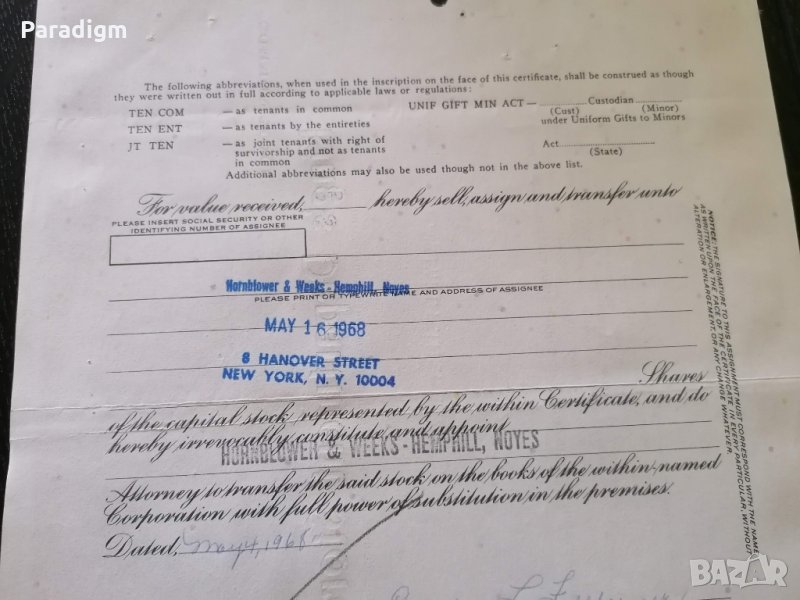 Paradigm
The following abbreviations, when used in the inscription on the face of this certificate, shall be construed as though
they were written out in full according to applicable laws or regulations:
TEN COM — as tenants in common
TEN ENT — as tenants by the entireties
JT TEN — as joint tenants with right of
survivorship and not as tenants
in common
UNIF GIFT MIN ACT — ............ Custodian ............
(Cust) (Minor)
under Uniform Gifts to Minors
Act ............
(State)
Additional abbreviations may also be used though not in the above list.
For value received, ________ hereby sell, assign and transfer unto
PLEASE INSERT SOCIAL SECURITY OR OTHER
IDENTIFYING NUMBER OF ASSIGNEE
Hornblower & Weeks - Hemphill, Noyes
PLEASE PRINT OR TYPEWRITE NAME AND ADDRESS OF ASSIGNEE
MAY 16 1968
8 HANOVER STREET
NEW YORK, N. Y. 10004
Shares
of the capital stock represented by the within Certificate, and do
hereby irrevocably constitute and appoint
HORNBLOWER & WEEKS - HEMPHILL, NOYES
Attorney to transfer the said stock on the books of the within-named
Corporation with full power of substitution in the premises.
Dated, 1968
NOTICE: THE SIGNATURE TO THIS ASSIGNMENT MUST CORRESPOND WITH THE NAME
AS WRITTEN UPON THE FACE OF THE CERTIFICATE IN EVERY PARTICULAR, WITHOUT
ALTERATION OR ENLARGEMENT OR ANY CHANGE WHATEVER.
BAZAR